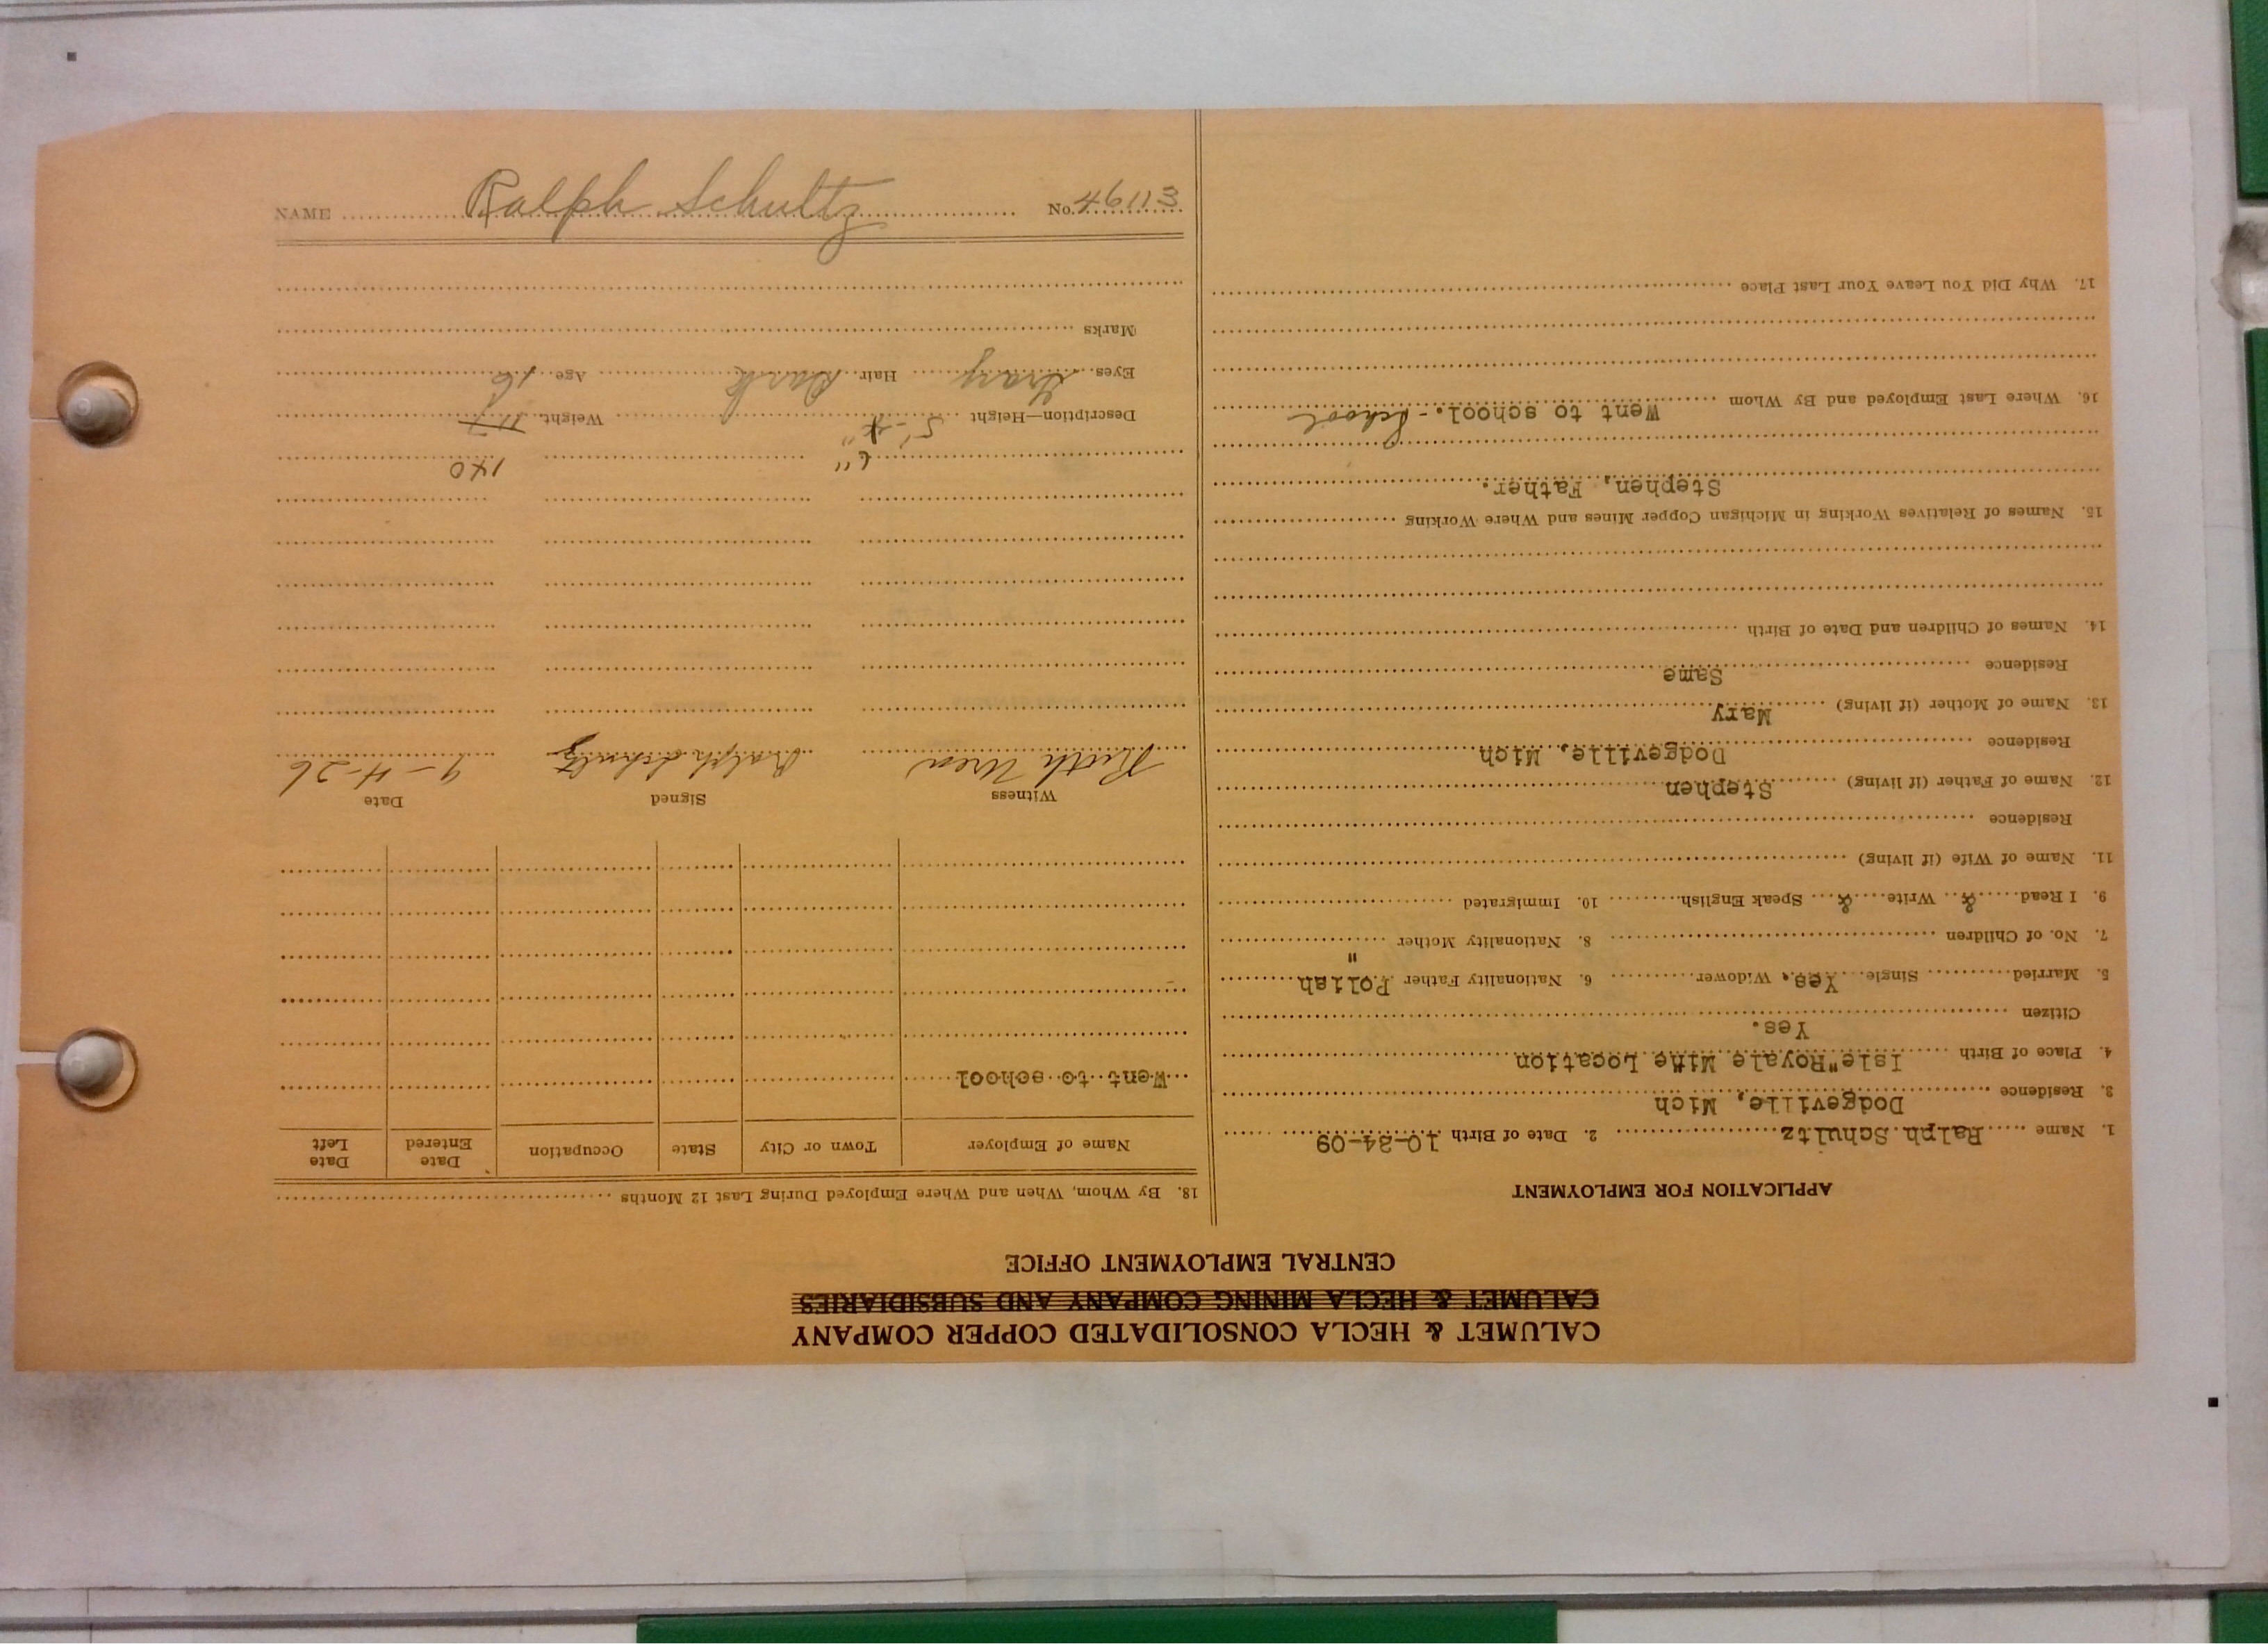 CALUMET & HECLA CONSOLIDATED COPPER COMPANY
CALUMET & HECLA MINING COMPANY AND SUBSIDIARIES
CENTRAL EMPLOYMENT OFFICE
APPLICATION FOR EMPLOYMENT
1. Name Ralph Schultz 2. Date of Birth 10-24-09
3. Residence Dodgeville, Mich
4. Place of Birth Isle Royale Mine Location
Citizen Yes.
5. Married Single Yes. Widower 6. Nationality Father Polish
7. No. of Children 8. Nationality Mother "
9. I Read & Write & Speak English 10. Immigrated
11. Name of Wife (if living)
Residence
12. Name of Father (if living) Stephen
Residence Dodgeville, Mich
13. Name of Mother (if living) Mary
Residence Same
14. Names of Children and Date of Birth
15. Names of Relatives Working in Michigan Copper Mines and Where Working
Stephen, Father.
16. Where Last Employed and By Whom Went to school. - School
17. Why Did You Leave Your Last Place
18. By Whom, When and Where Employed During Last 12 Months
Name of Employer Town or City State Occupation Date Entered Date Left
Went to school
Witness Signed Date
Ruth Uren Ralph Schultz 9-4-26
6" 140
Description—Height 5'-4" Weight 117
Eyes Gray Hair Dark Age 16
Marks
NAME Ralph Schultz No. 46113